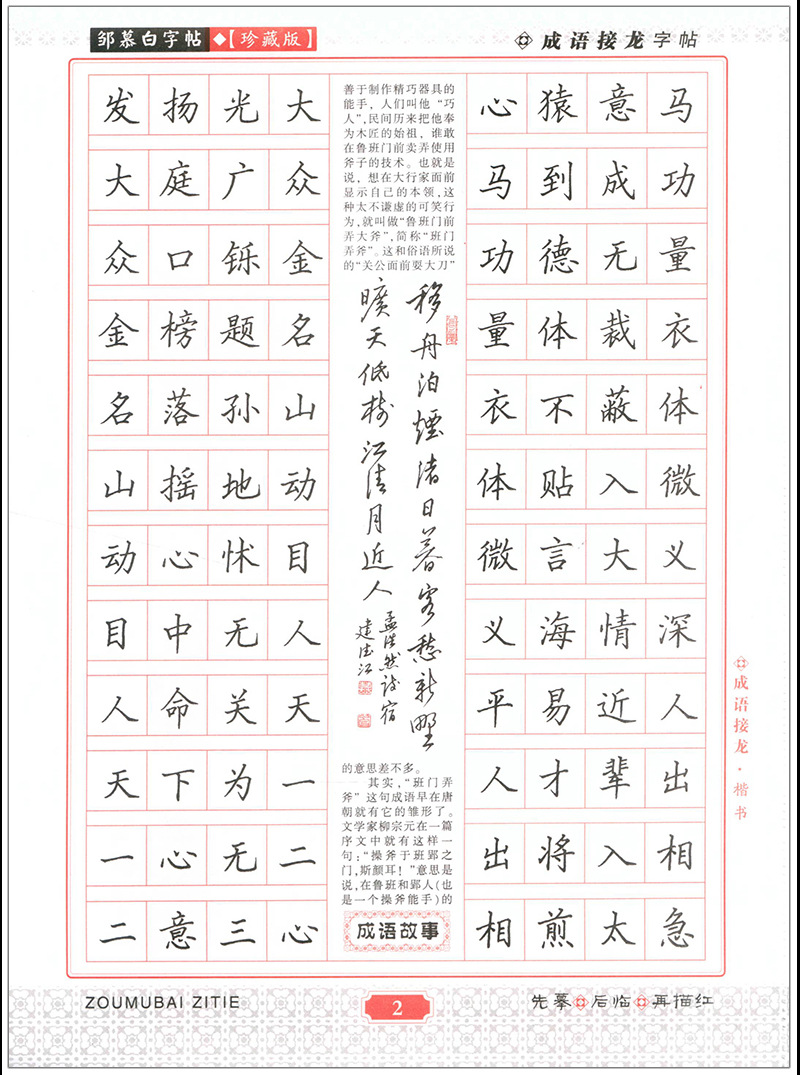 邹慕白字帖 【珍藏版】
成语接龙字帖
发扬光大
大庭广众
众口铄金
金榜题名
名落孙山
山摇地动
动心怵目
目中无人
人命关天
天下为一
一心无二
二意三心
善于制作精巧器具的
能手，人们叫他“巧
人”，民间历来把他奉
为木匠的始祖，谁敢
在鲁班门前卖弄使用
斧子的技术。也就是
说，想在大行家面前
显示自己的本领，这
种太不谦虚的可笑行
为，就叫做“鲁班门前
弄大斧”，简称“班门
弄斧”。这和俗语所说
的“关公面前耍大刀”
移舟泊煙渚日暮客愁新野
曠天低树江清月近人
孟浩然诗宿
建德江
的意思差不多。
其实，“班门弄
斧”这句成语早在唐
朝就有它的雏形了。
文学家柳宗元在一篇
序文中就有这样一
句：“操斧于班郢之
门，斯颜耳！”意思是
说，在鲁班和郢人（也
是一个操斧能手）的
成语故事
心猿意马
马到成功
功德无量
量体裁衣
衣不蔽体
体贴入微
微言大义
义海情深
平易近人
人才辈出
出将入相
相煎太急
成语接龙·楷书
ZOUMUBAI ZITIE
2
先摹 后临 再描红